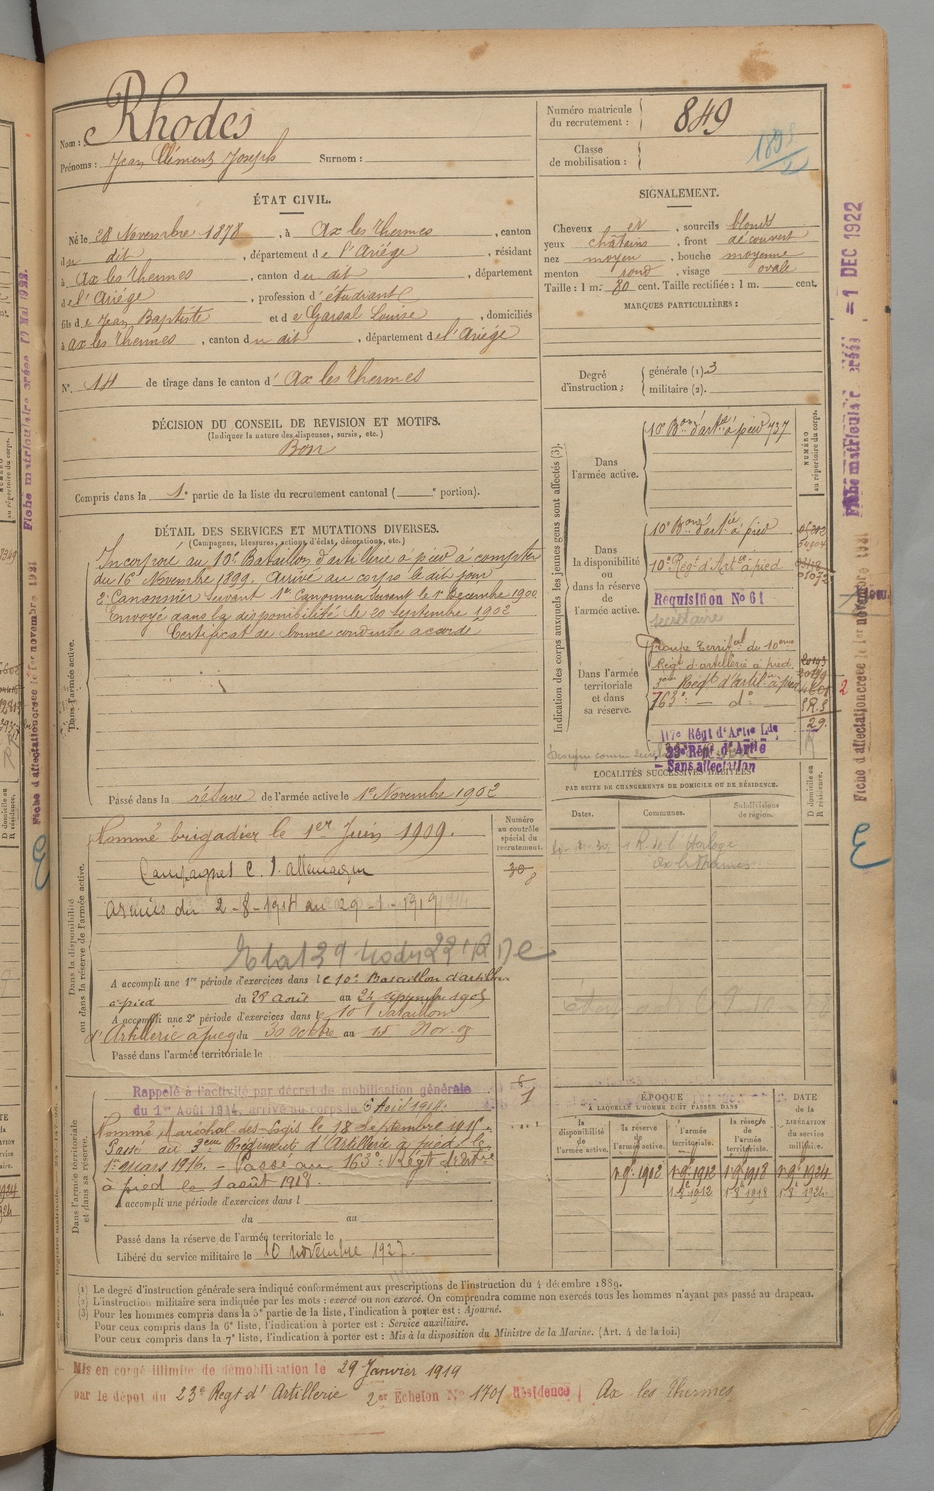 Nom : Rhodes
Prénoms : Jean Clément Joseph Surnom :
Numéro matricule du recrutement : 849
Classe de mobilisation :
ÉTAT CIVIL.
Né le 28 Novembre 1878, à Ax les Thermes, canton
du dit, département de l'Ariége, résidant
à Ax les Thermes, canton du dit, département
de l'Ariége, profession d'étudiant
fils de Jean Baptiste et de Garsal Louise, domiciliés
à Ax les Thermes, canton du dit, département de l'Ariége
N° 14 de tirage dans le canton d' Ax les Thermes
SIGNALEMENT.
Cheveux et, sourcils blonds
yeux châtains, front découvert
nez moyen, bouche moyenne
menton rond, visage ovale
Taille : 1 m. 80 cent. Taille rectifiée : 1 m. cent.
MARQUES PARTICULIÈRES :
Degré d'instruction : générale (1). 3
militaire (2).
DÉCISION DU CONSEIL DE REVISION ET MOTIFS.
(Indiquer la nature des dispenses, sursis, etc.)
Bon
Compris dans la 1e partie de la liste du recrutement cantonal ( e portion).
DÉTAIL DES SERVICES ET MUTATIONS DIVERSES.
(Campagnes, blessures, actions d'éclat, décorations, etc.)
Dans l'armée active.
Incorporé au 10e Bataillon d'artillerie à pied à compter
du 16 Novembre 1899. Arrivé au corps le dit jour
2e Canonnier servant 1er Canonnier servant le 1er Décembre 1900
Envoyé dans la disponibilité le 20 Septembre 1902
Certificat de bonne conduite accordé
Passé dans la réserve de l'armée active le 1er Novembre 1902
Indication des corps auxquels les jeunes gens sont affectés (3).
NUMÉRO au répertoire du corps.
Dans l'armée active.
10e Bon d'artie à pied 737
Dans la disponibilité ou dans la réserve de l'armée active.
10e Bon d'artie à pied
10e Régt d'Artie à pied
Requisition No 61
secrétaire
Dans l'armée territoriale et dans sa réserve.
Groupe Territal du 10eme
Régt d'artillerie à pied
3eme Régt d'artie à pied
163e — do —
117e Régt d'Artie Lde
23e Régt d'Artie
Sans affectation
LOCALITÉS SUCCESSIVES HABITÉES
PAR SUITE DE CHANGEMENTS DE DOMICILE OU DE RÉSIDENCE.
Dates. Communes. Subdivisions de région. D domicile ou R résidence.
R. de l'Horloge
Ax les Thermes
Numéro au contrôle spécial du recrutement.
Dans la disponibilité ou dans la réserve de l'armée active.
Nommé brigadier le 1er Juin 1909.
Campagnes C. l'allemagne
Armées du 2-8-1914 au 29-1-1919
A accompli une 1re période d'exercices dans le 10e Bataillon d'artillerie
à pied du 28 août au 24 septembre 1905
A accompli une 2e période d'exercices dans le 10e Bataillon
d'Artillerie à pied du 30 octbre au 15 Nov.
Passé dans l'armée territoriale le
Dans l'armée territoriale et dans sa réserve.
Rappelé à l'activité par décret de mobilisation générale
du 1er Août 1914, arrivé au corps le 3 Août 1914.
Nommé Maréchal-des-Logis le 18 Septembre 1915.
Passé au 3eme Régiment d'Artillerie à pied le
1er mars 1916. — Passé au 163e Régt d'artie
à pied le 1 août 1918.
A accompli une période d'exercices dans l
du au
Passé dans la réserve de l'armée territoriale le
Libéré du service militaire le 10 novembre 1927.
ÉPOQUE
À LAQUELLE L'HOMME DOIT PASSER DANS
la disponibilité de l'armée active. la réserve de l'armée active. l'armée territoriale. la réserve de l'armée territoriale. DATE de la LIBÉRATION du service militaire.
1-9e 1902 1-9e 1912 1-9e 1918 1-9e 1924
(1) Le degré d'instruction générale sera indiqué conformément aux prescriptions de l'instruction du 4 décembre 1889.
(2) L'instruction militaire sera indiquée par les mots : exercé ou non exercé. On comprendra comme non exercés tous les hommes n'ayant pas passé au drapeau.
(3) Pour les hommes compris dans la 5e partie de la liste, l'indication à porter est : Ajourné.
Pour ceux compris dans la 6e liste, l'indication à porter est : Service auxiliaire.
Pour ceux compris dans la 7e liste, l'indication à porter est : Mis à la disposition du Ministre de la Marine. (Art. 4 de la loi.)
Mis en congé illimité de démobilisation le 29 Janvier 1919
par le dépôt du 23e Regt d'Artillerie 2er Echelon No 1701 Résidence Ax les Thermes
Fiche matriculaire créée = 1 DEC 1922
Fiche d'affectation créée le 1er novembre 1921